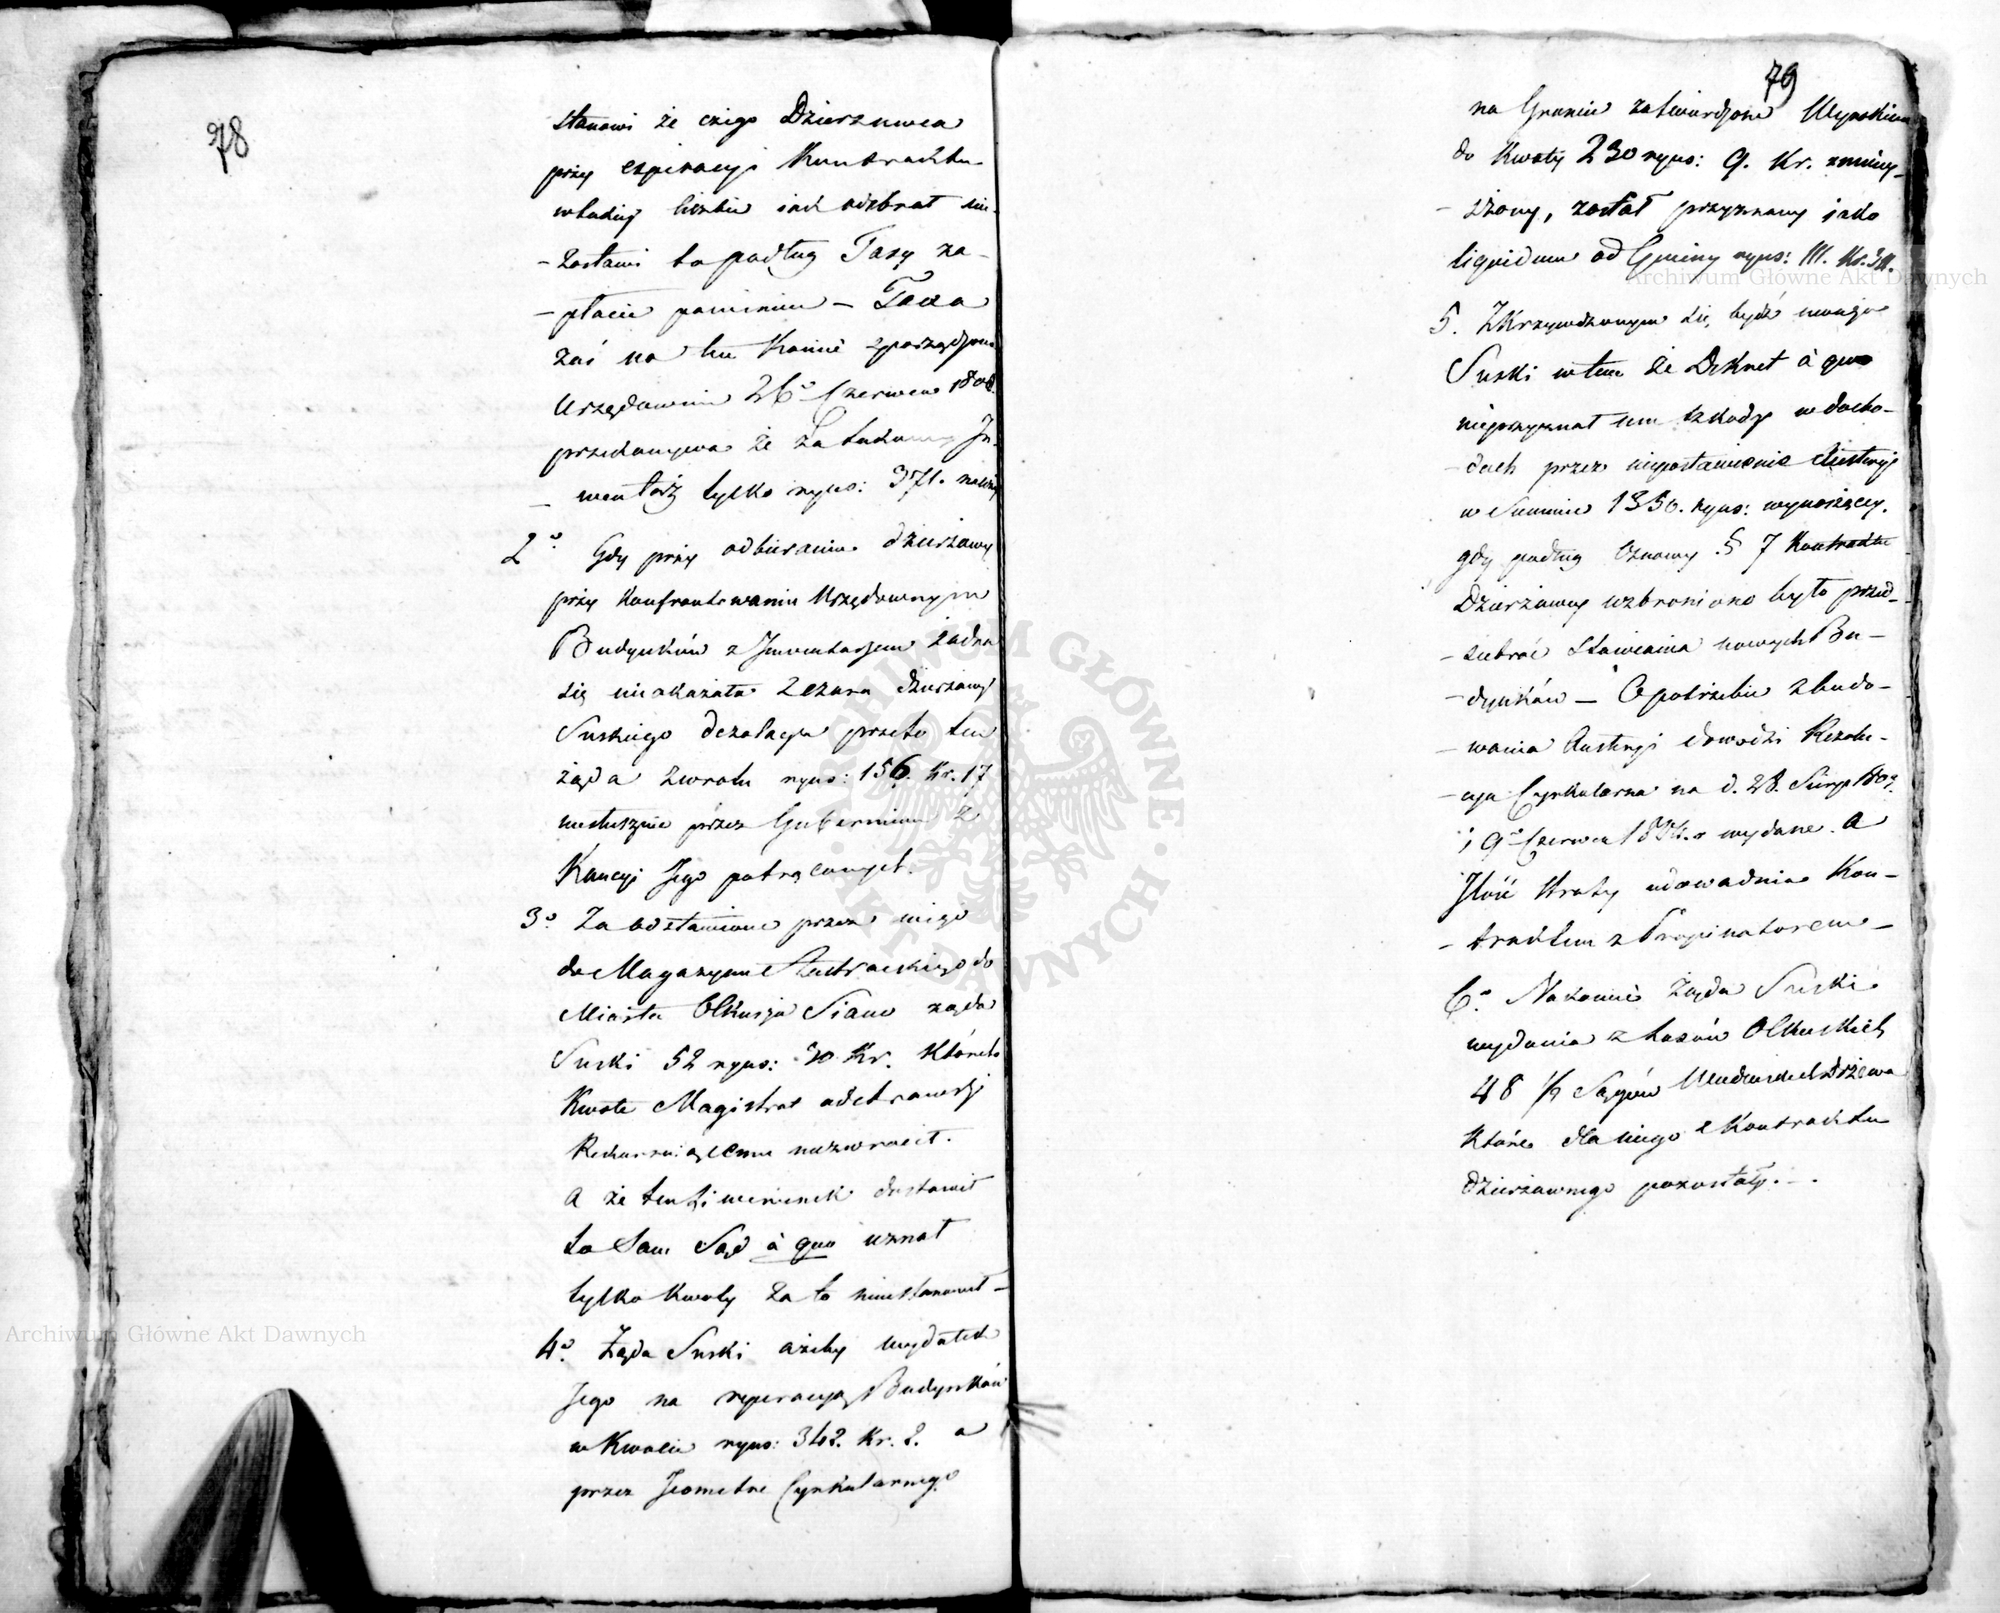 78
stanowi że czego Dzierzawca
przy expiracyi Kontraktu
w takiey liczbie jak odebrał nie
-zostawi to podług Taxy za-
-płacić powinien – Taxa
zaś na ten Koniec sporządzona
Urzędownie 26º Czerwca 1808
przekonywa że za takowy In-
- wentarz tylko ryns: 371. należy
2º. Gdy przy odbieraniu dzierżawy
przy Konfrontowaniu Urzędownym
Budynków z Inwentarzem żadna
się nieokazała z czasu dzierżawy
Suskiego dezolacya przeto ten
żąda zwrotu ryns: 156. Kr. 17
niesłusznie przez Gubernium z
Kaucyi Jego potrąconych.
3º Za odstawione przez niego
do Magazynu Austryackiego do
Miasta Olkusza Siano żąda
Suski 52 ryns: 30 Kr. Które to
Kwote Magistrat odebrawszy
Rekurruiącemu niezwrócił.
A że ten Liwerunek dostawił
to Sam Sąd à quo uznał
tylko kwoty za to nieustanowił –
4º. Żąda Suski ażeby wydatek
Jego na reperacyą Budynków
w Kwocie ryns: 342. Kr. 2. a
przez Jeometre Cyrkularnego
79
na Gruncie zatwierdzone
do Kwoty 230 ryns: 9. Kr. zmniey-
- szony, został przyznany jako
liquidum od Gminy ryns: 111. Kr.
5. Zkrzywdzonym się bydź mniema
Suski w tem że Dekret à quo
nieprzyznał mu szkody w docho-
- dach przez niepostawienie Austeryi
w Summie 1350. ryns: wynoszącey.
gdy podług Osnowy § 7 Kontraktu
Dzierżawy wzbroniono było przed-
- siebrać Stawiania nowych Bu-
- dynków – O potrzebie zbudo-
- wania Austeryi dowodzi Rezolu-
- cya Cyrkularna na d. 28. Sierp.
i 9º Czerwca wydane. A
Ilość straty udowadnia Kon-
- traktem z Propinatorem –
6º. Nakoniec żąda Suski
wydania z Lasów Olkuskich
48 ½ Sągów Drzewa
które dla niego z Kontraktu
dzierżawnego pozostały. –.
Archiwum Główne Akt Dawnych
Archiwum Główne Akt Dawnych
ARCHIWUM GŁÓWNE · AKT DAWNYCH ·